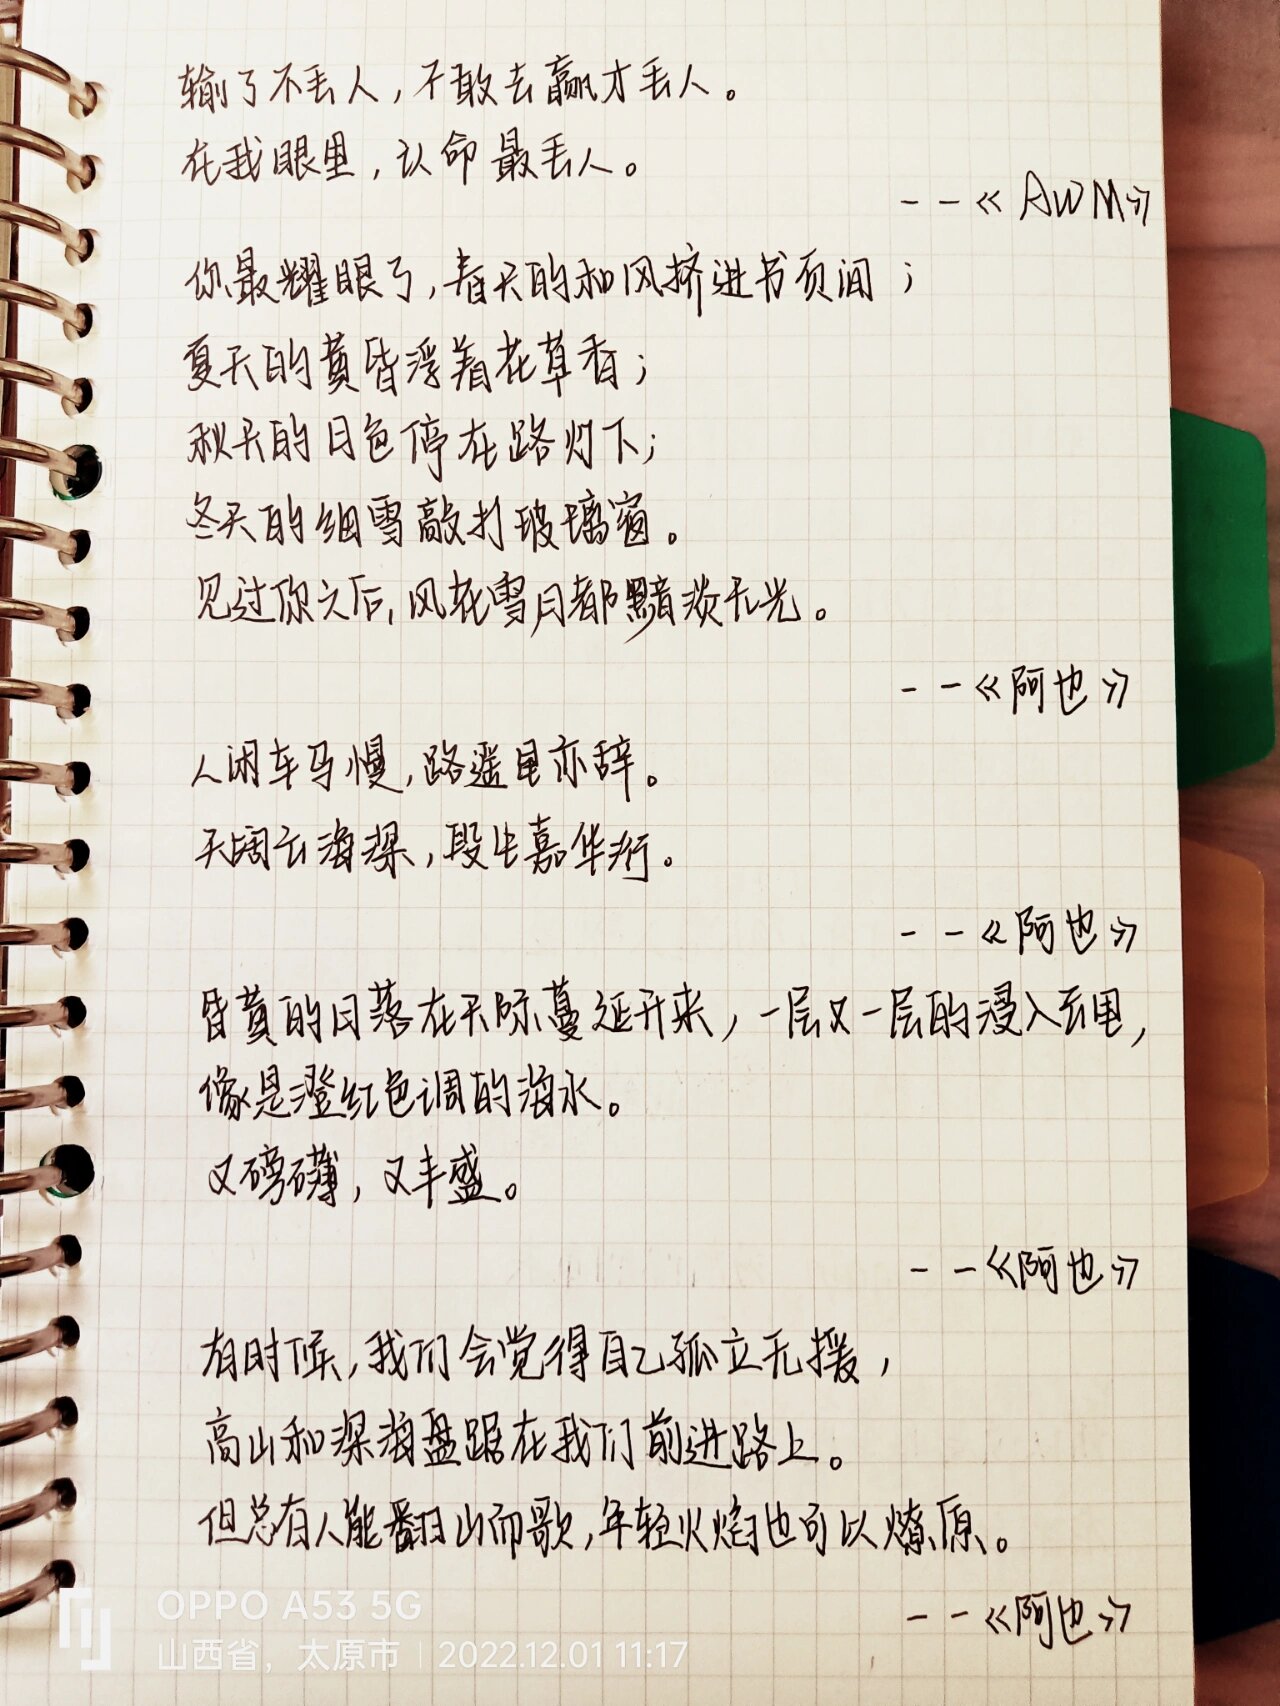 输了不丢人，不敢去赢才丢人。
在我眼里，认命最丢人。
--《AWM》
你最耀眼了，春天的和风挤进书页间；
夏天的黄昏浮着花草香；
秋天的日色停在路灯下；
冬天的细雪敲打玻璃窗。
见过你之后，风花雪月都黯淡无光。
--《阿也》
人闲车马慢，路遥星亦辞。
天阔云海深，段生嘉华行。
--《阿也》
昏黄的日落在天际蔓延开来，一层又一层的浸入云里，
像是澄红色调的海水。
又磅礴，又丰盛。
--《阿也》
有时候，我们会觉得自己孤立无援，
高山和深海盘踞在我们前进路上。
但总有人能翻山而歌，年轻火焰也可以燎原。
--《阿也》
OPPO A53 5G
山西省，太原市 | 2022.12.01 11:17